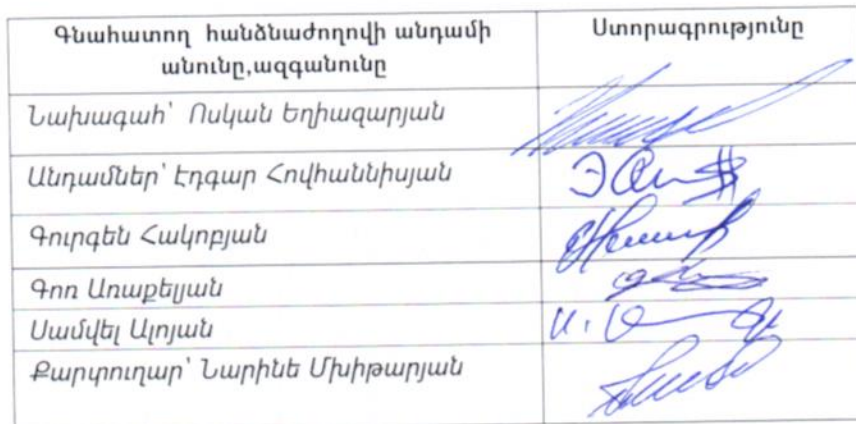 Գնահատող հանձնաժողովի անդամի Ստորագրությունը
անունը,ազգանունը
Նախագահ՝ Ոսկան Եղիազարյան
Անդամներ՝ Էդգար Հովհաննիսյան
Գուրգեն Հակոբյան
Գոռ Առաքելյան
Սամվել Ալոյան
Քարտուղար՝ Նարինե Մխիթարյան